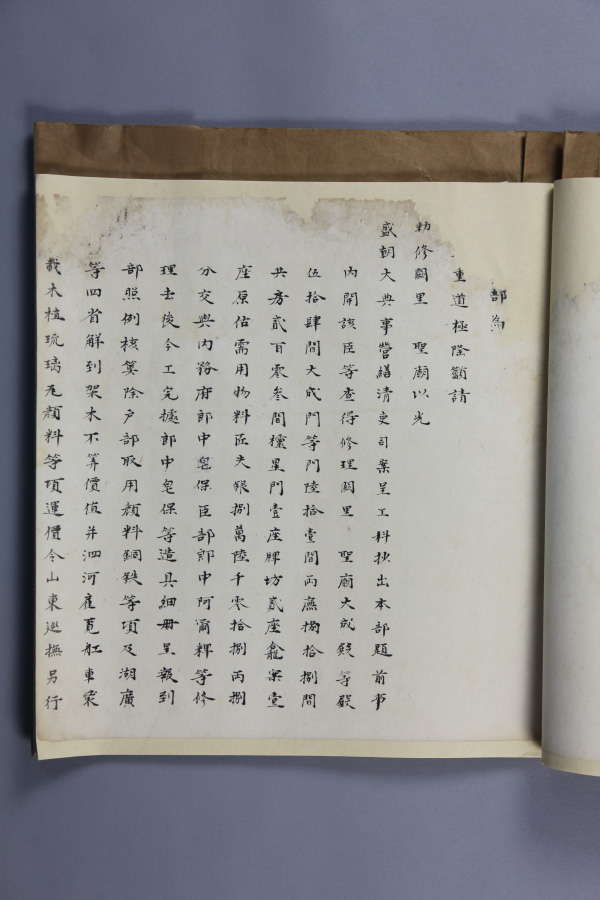 部為
重道極隆籲請
勅修闕里　聖廟以光
盛朝大典事營繕清吏司案呈工科抄出本部題前事
内開該臣等查得修理闕里　聖廟大成殿等殿
伍拾肆間大成門等門陸拾壹間両廡捌拾捌間
共房貳百零叁間欞星門壹座牌坊貳座龕案壹
座原估需用物料匠夫銀捌萬陸千零拾捌両捌
分交與内務府郎中皂保臣部郎中阿爾稗等修
理去後今工完據郎中皂保等造具細册呈報到
部照例核算除户部取用顔料銅鉄等項及湖廣
等四省解到架木不筭價值并泗河雇覓舡車裝
載木植琉璃瓦顔料等項運價令山東巡撫另行